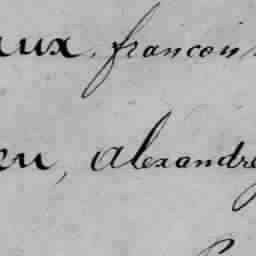 aux, francois
eu, alexandre